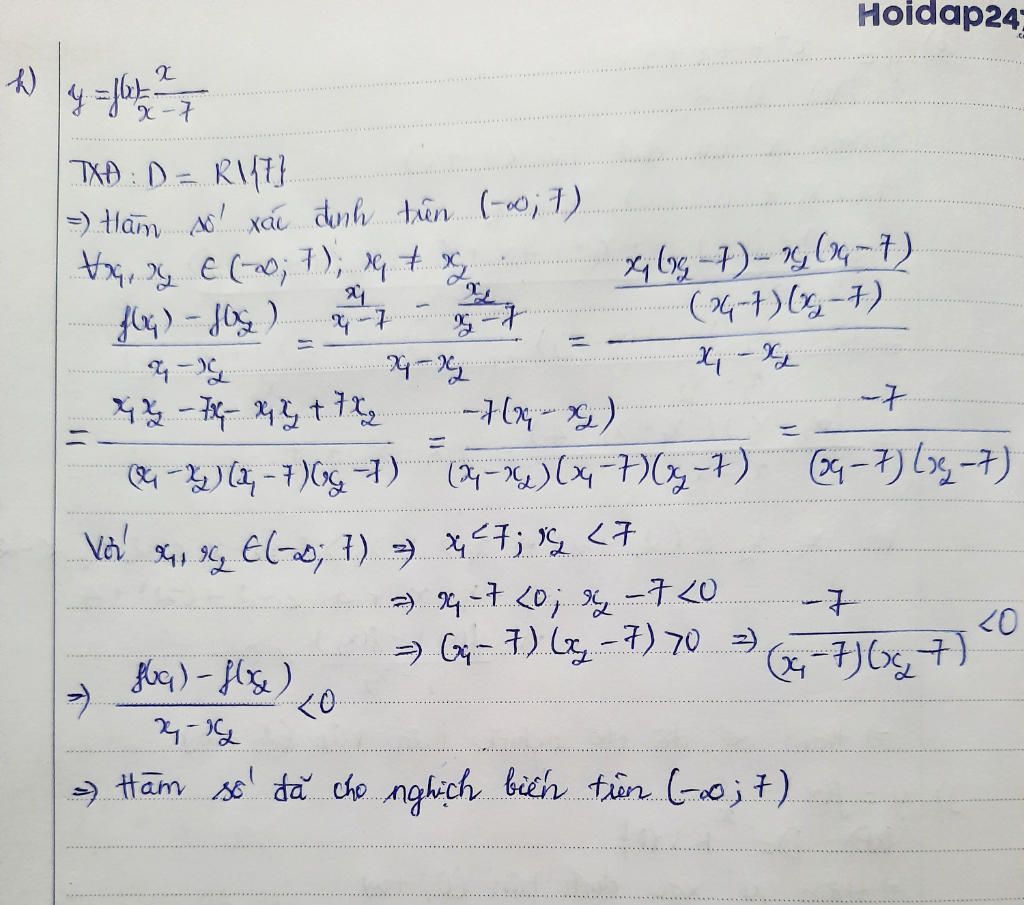 Hoidap247
h) y = f(x) = x/(x - 7)
TXĐ: D = R\{7}
=> Hàm số xác định trên (-∞; 7)
∀x₁, x₂ ∈ (-∞; 7); x₁ ≠ x₂
(f(x₁) - f(x₂))/(x₁ - x₂) = (x₁/(x₁ - 7) - x₂/(x₂ - 7))/(x₁ - x₂) = ((x₁(x₂ - 7) - x₂(x₁ - 7))/((x₁ - 7)(x₂ - 7)))/(x₁ - x₂)
= (x₁x₂ - 7x₁ - x₁x₂ + 7x₂)/((x₁ - x₂)(x₁ - 7)(x₂ - 7)) = (-7(x₁ - x₂))/((x₁ - x₂)(x₁ - 7)(x₂ - 7)) = -7/((x₁ - 7)(x₂ - 7))
Với x₁, x₂ ∈ (-∞; 7) => x₁ < 7; x₂ < 7
=> x₁ - 7 < 0; x₂ - 7 < 0
=> (x₁ - 7)(x₂ - 7) > 0 => -7/((x₁ - 7)(x₂ - 7)) < 0
=> (f(x₁) - f(x₂))/(x₁ - x₂) < 0
=> Hàm số đã cho nghịch biến trên (-∞; 7)